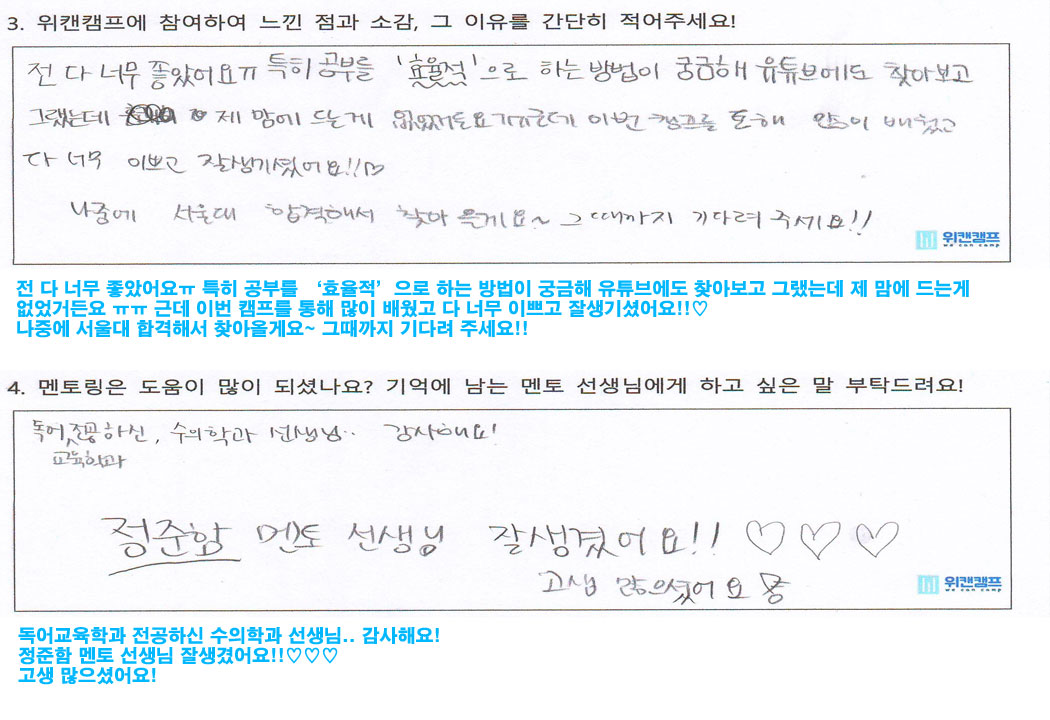 3. 위캔캠프에 참여하여 느낀 점과 소감, 그 이유를 간단히 적어주세요!
전 다 너무 좋았어요ㅠ 특히 공부를 '효율적'으로 하는 방법이 궁금해 유튜브에도 찾아보고
그랬는데 제 맘에 드는게 없었거든요ㅠㅠ근데 이번 캠프를 통해 많이 배웠고
다 너무 이쁘고 잘생기셨어요!!♡
나중에 서울대 합격해서 찾아올게요~ 그때까지 기다려 주세요!!
위캔캠프
we can camp
전 다 너무 좋았어요ㅠ 특히 공부를 ‘효율적’으로 하는 방법이 궁금해 유튜브에도 찾아보고 그랬는데 제 맘에 드는게
없었거든요 ㅠㅠ 근데 이번 캠프를 통해 많이 배웠고 다 너무 이쁘고 잘생기셨어요!!♡
나중에 서울대 합격해서 찾아올게요~ 그때까지 기다려 주세요!!
4. 멘토링은 도움이 많이 되셨나요? 기억에 남는 멘토 선생님에게 하고 싶은 말 부탁드려요!
독어 전공하신, 수의학과 선생님.. 감사해요!
교육학과
정준함 멘토 선생님 잘생겼어요!! ♡ ♡ ♡
고생 많으셨어요
위캔캠프
we can camp
독어교육학과 전공하신 수의학과 선생님.. 감사해요!
정준함 멘토 선생님 잘생겼어요!!♡♡♡
고생 많으셨어요!